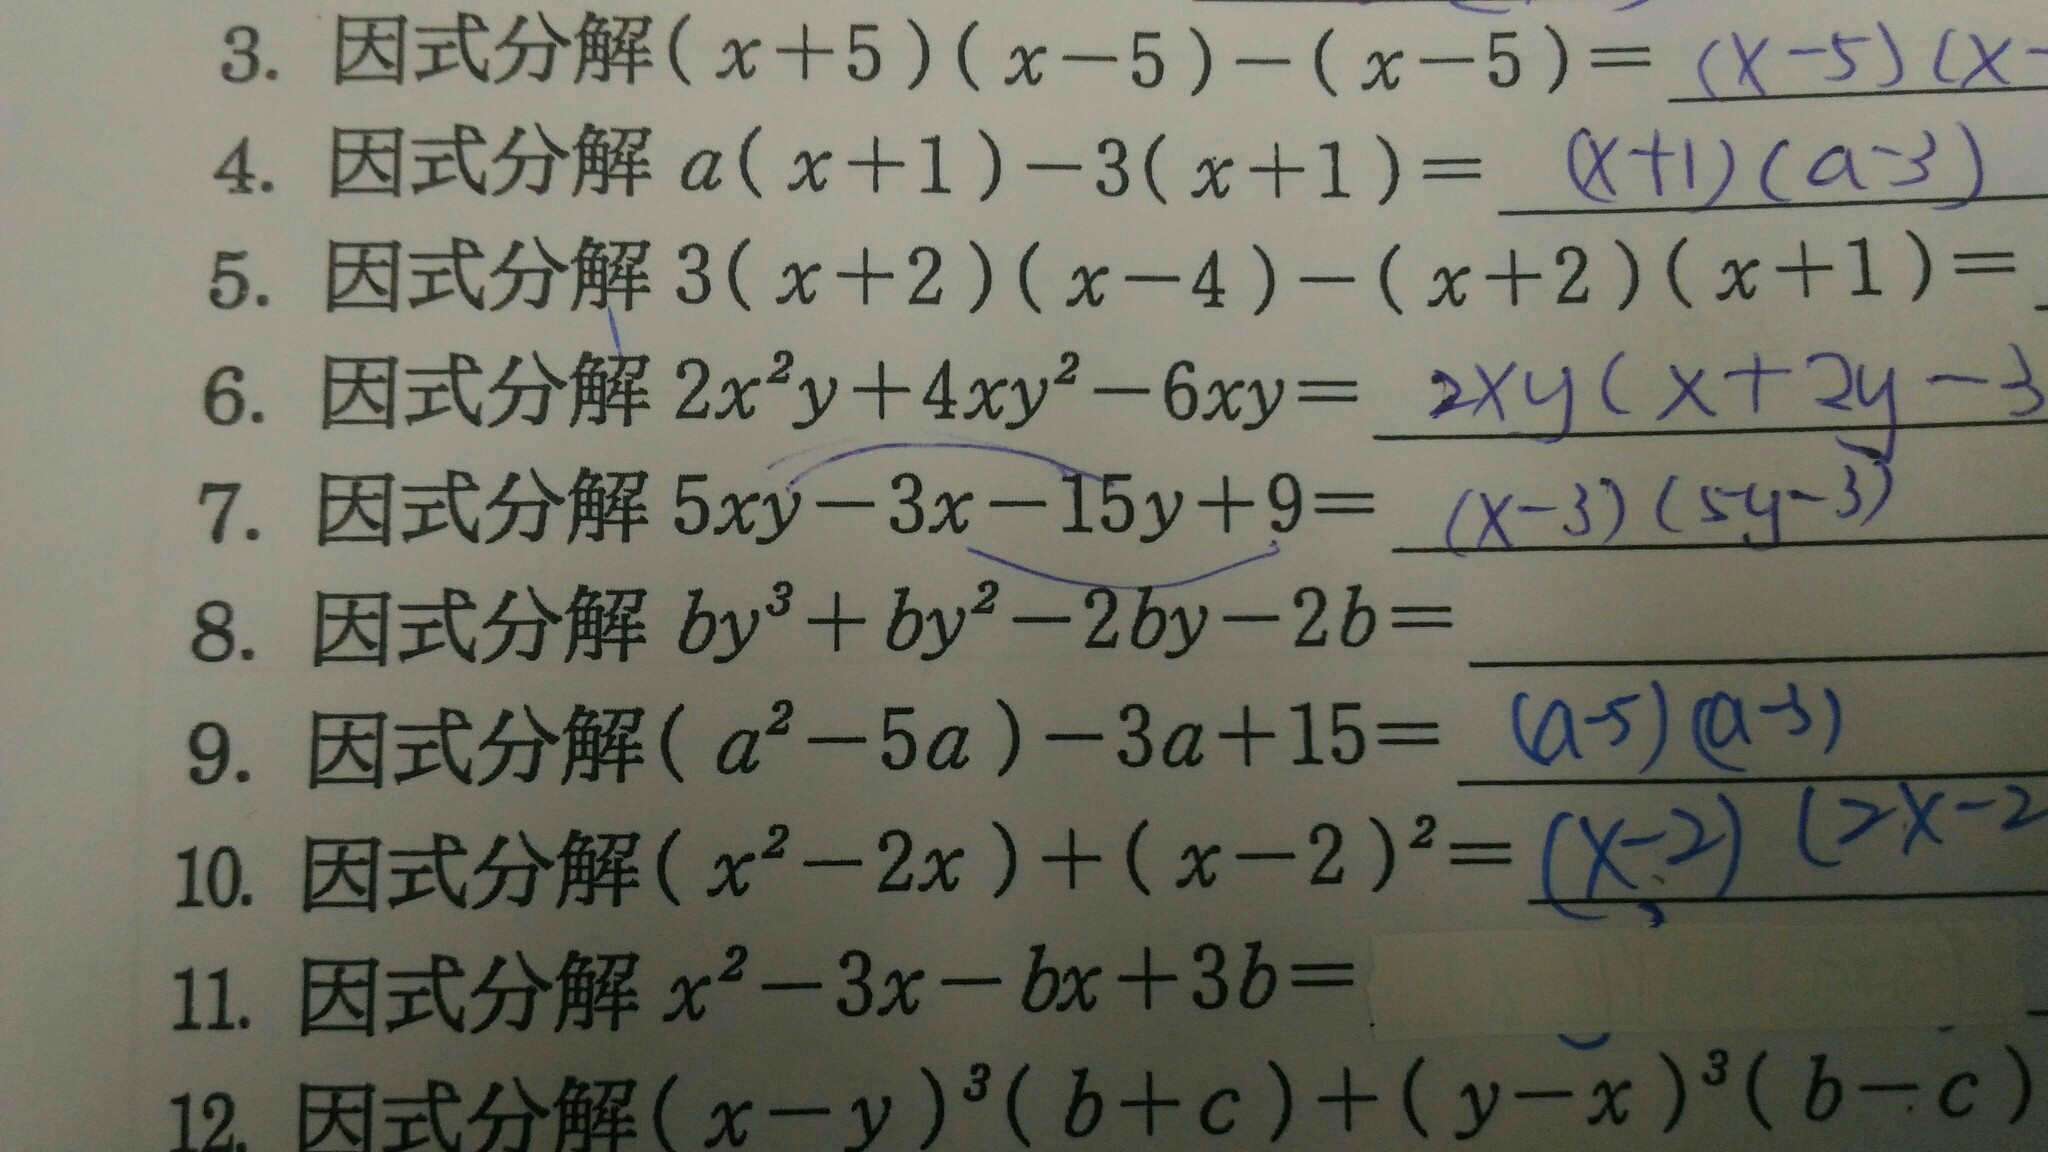 3. 因式分解(x+5)(x-5)-(x-5)= (x-5)(x-
4. 因式分解 a(x+1)-3(x+1)= (x+1)(a-3)
5. 因式分解 3(x+2)(x-4)-(x+2)(x+1)=
6. 因式分解 2x²y+4xy²-6xy= 2xy(x+2y-3
7. 因式分解 5xy-3x-15y+9= (x-3)(5y-3)
8. 因式分解 by³+by²-2by-2b=
9. 因式分解(a²-5a)-3a+15= (a-5)(a-3)
10. 因式分解(x²-2x)+(x-2)²= (x-2)(2x-2
11. 因式分解 x²-3x-bx+3b=
12. 因式分解(x-y)³(b+c)+(y-x)³(b-c)